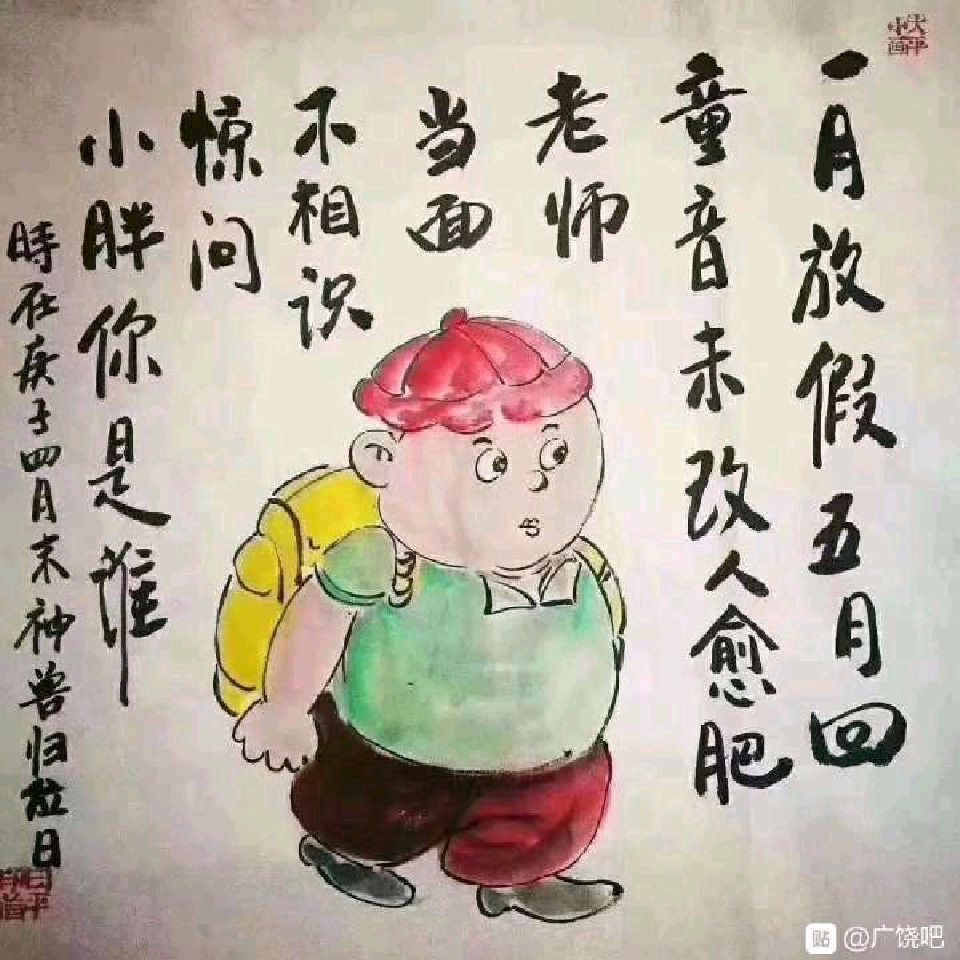 一月放假五月回
童音未改人愈肥
老师
当面
不相识
惊问
小胖你是谁
時在庚子四月末神兽归日
贴 @广饶吧